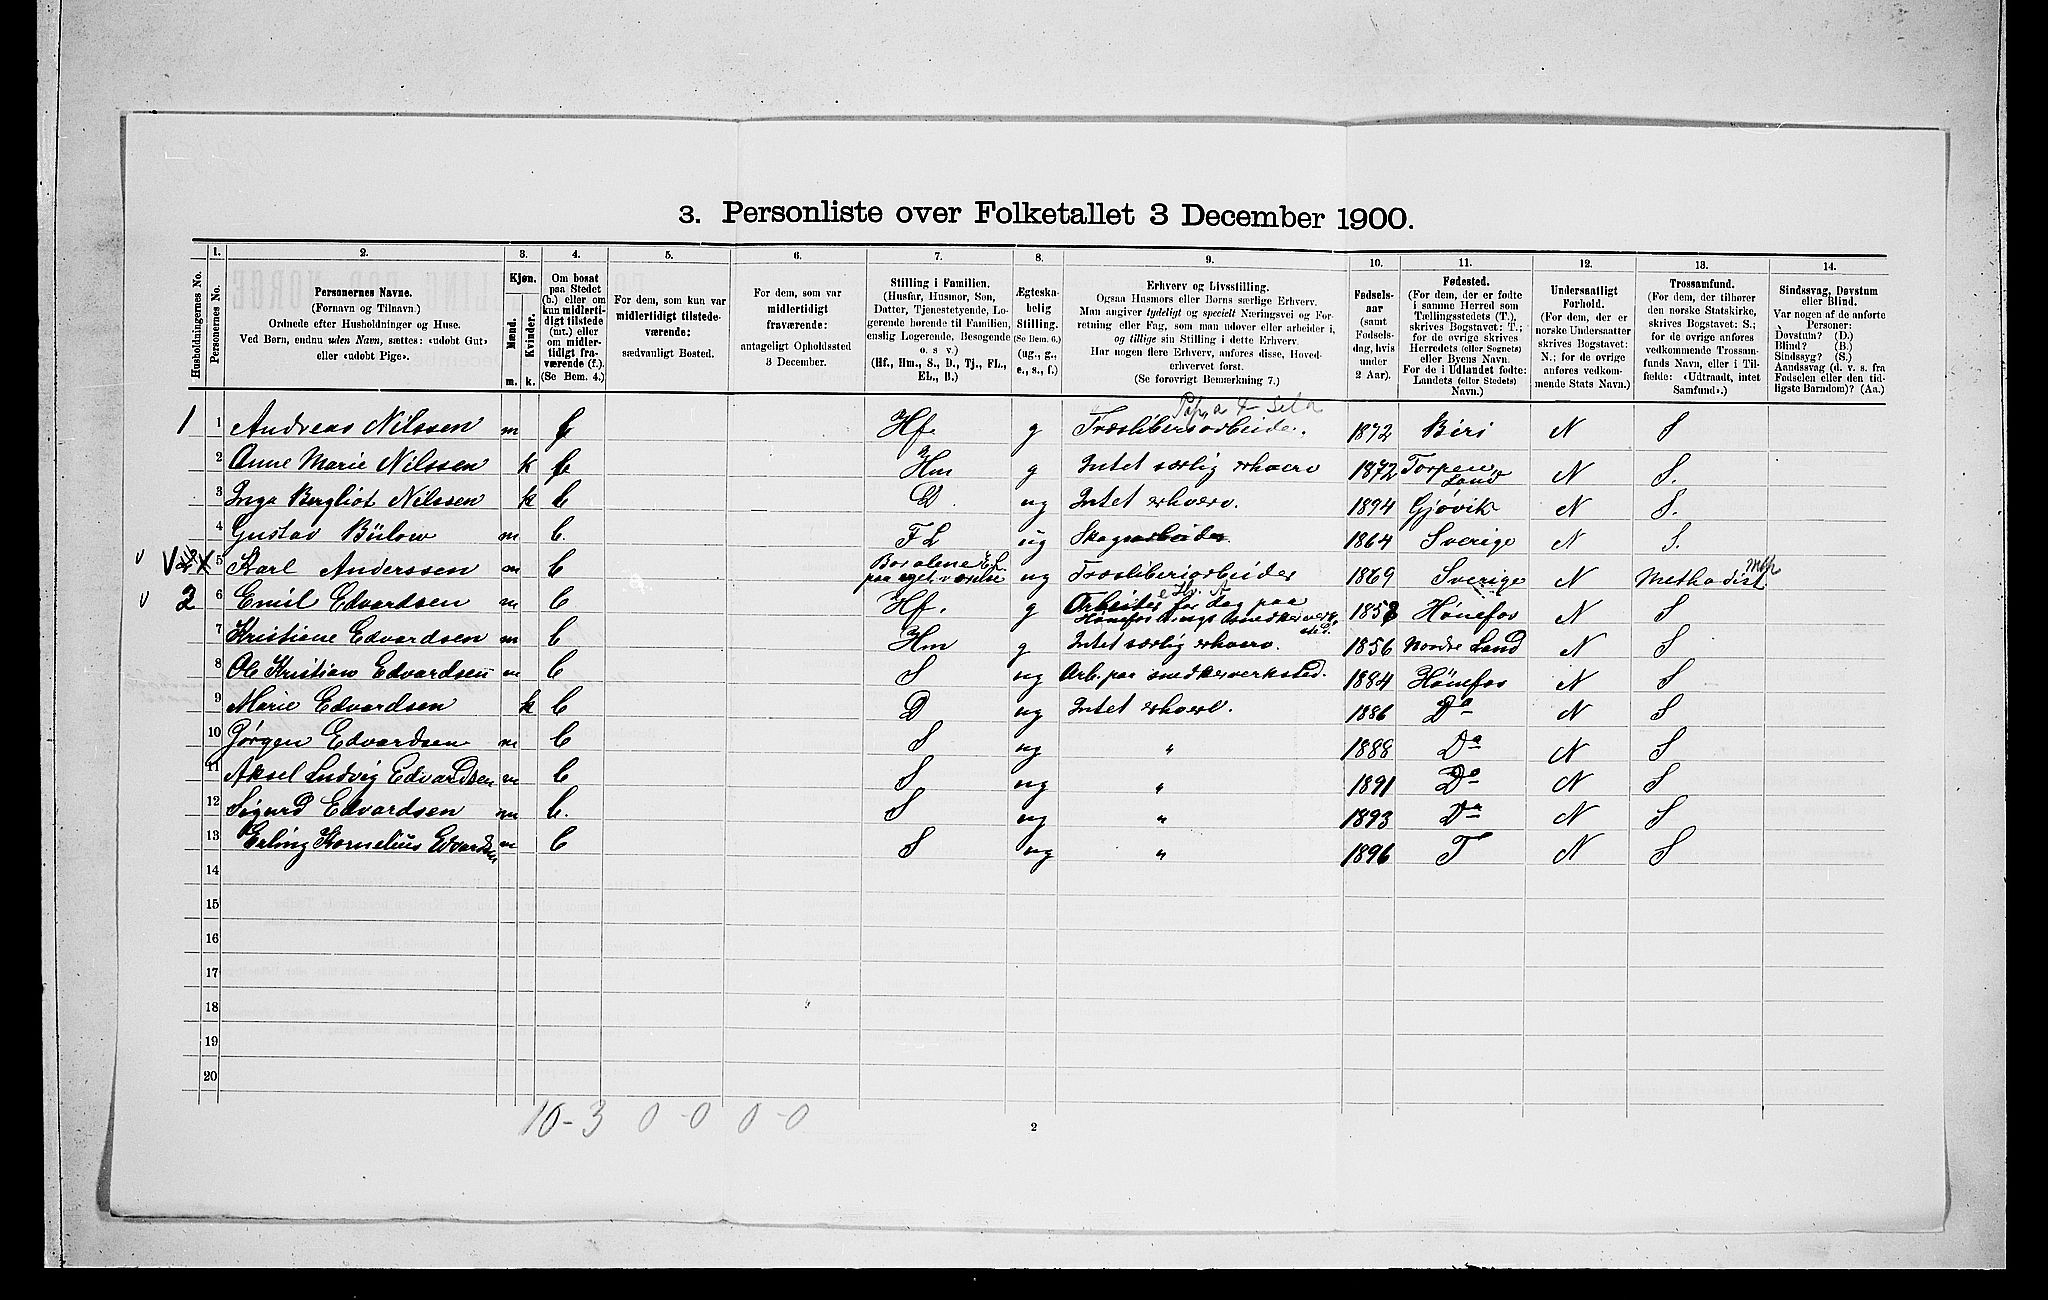 3. Personliste over Folketallet 3 December 1900.
Husholdningernes No.
1. Personernes No.
2. Personernes Navne.
(Fornavn og Tilnavn.)
Ordnede efter Husholdninger og Huse.
Ved Børn, endnu uden Navn, sættes: «udøbt Gut»
eller «udøbt Pige».
3. Kjøn.
Mænd. m.
Kvinder. k.
4. Om bosat
paa Stedet
(b.) eller om
kun midlerti-
digt tilstede
(mt.) eller
om midler-
tidigt fra-
værende (f.).
(Se Bem. 4.)
5. For dem, som kun var
midlertidigt tilstede-
værende:
sædvanligt Bosted.
6. For dem, som var
midlertidigt
fraværende:
antageligt Opholdssted
3 December.
7. Stilling i Familien.
(Husfar, Husmor, Søn,
Datter, Tjenestetyende, Lo-
gerende hørende til Familien,
enslig Logerende, Besøgende
o. s v.)
(Hf., Hm., S., D., Tj., FL.,
EL., B.)
8. Ægteska-
belig
Stilling.
(Se Bem. 6.)
(ug., g.,
e., s., f.)
9. Erhverv og Livsstilling.
Ogsaa Husmors eller Børns særlige Erhverv.
Man angiver tydeligt og specielt Næringsvei og For-
retning eller Fag, som man udøver eller arbeider i,
og tillige sin Stilling i dette Erhverv.
Har nogen flere Erhverv, anføres disse, Hoved-
erhvervet først.
(Se forøvrigt Bemerkning 7.)
10. Fødsels-
aar
(samt
Fødsels-
dag, hvis
under
2 Aar).
11. Fødested.
(For dem, der er fødte
i samme Herred som
Tællingsstedets (T.),
skrives Bogstavet: T.;
for de øvrige skrives
Herredets (eller Sognets)
eller Byens Navn.
For de i Udlandet fødte:
Landets (eller Stedets)
Navn.)
12. Undersaatligt
Forhold.
(For dem, der er
norske Undersaatter
skrives Bogstavet:
N.; for de øvrige
anføres vedkom-
mende Stats Navn.)
13. Trossamfund.
(For dem, der tilhører
den norske Statskirke,
skrives Bogstavet: S.;
for de øvrige anføres
vedkommende Trossam-
funds Navn, eller i Til-
fælde: «Udtraadt, intet
Samfund».)
14. Sindssvag, Døvstum
eller Blind.
Var nogen af de anførte
Personer:
Døvstum? (D.)
Blind? (B.)
Sindssyg? (S.)
Aandssvag (d. v. s. fra
Fødselen eller den tid-
ligste Barndom)? (Aa.)
1 1 Andreas Nilssen m b Hf. g Træsliberiarbeider. 1872 Biri N S
2 Anne Marie Nilssen k b Hm g Intet særlig erhverv 1872 Torpen Land N S.
3 Inga Bergliot Nilssen k b D. ug Intet erhverv. 1894 Gjøvik N S.
4 Gustav Bülow m b. FL ug Skogsarbeider. 1864 Sverige N S.
5 Karl Anderssen m b paa eget værelse EL ug Træsliberiarbeider 1869 Sverige N Methodist
2 6 Emil Edvardsen m b Hf. g Arbeider for dag paa Hønefos 1858 Hønefos N S
7 Kristiene Edvardsen m b Hm g Intet særlig erhverv. 1856 Nordre Land N S
8 Ole Kristian Edvardsen m b S ug Arb. paa snedkerverksted. 1884 Hønefos N S
9 Marie Edvardsen k b D ug Intet erhverv. 1886 Do N S
10 Jørgen Edvardsen m b S ug " 1888 Do N S
11 Aksel Ludvig Edvardsen m b S ug " 1891 Do N S
12 Sigurd Edvardsen m b. S ug " 1893 Do N S
13 Erling Kornelius Edvardsen m b S ug " 1896 T N S
14
15
16
17
18
19
20
10-3 0-0 0-0
2